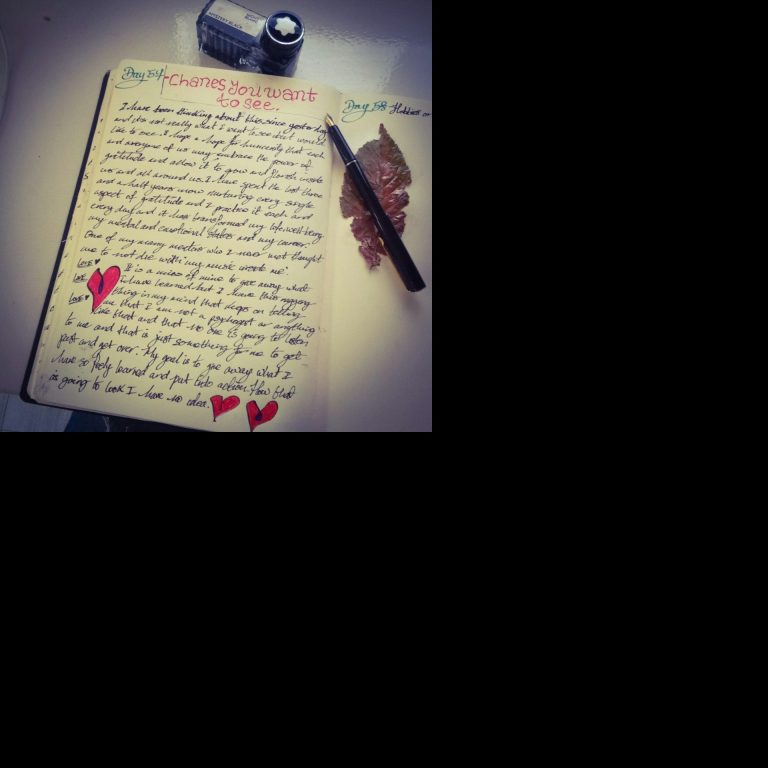 MYSTERY BLACK
Day 57
Chanes you want
to see.
I have been thinking about this since yesterday
and it's not really what I want to see but would
like to see. I hope a hope for humanity that each
and everyone of us may embrace the power of
gratitude and allow it to grow and florish inside
us and all around us. I have spent the last three
and a half years now nurturing every single
aspect of gratitude and I practice it each and
every day and it has transformed my life, well being
my mental and emotional states and my career.
One of my many mentors who I never met thought
me to not die with "my music inside me".
Love It is a miss of mine to give away what
Love I have learned but I have this nagging
Love thing in my mind that keeps on telling
me that I am not a psychologist or anything
like that and that no one is going to listen
to me and that is just something for me to get
past and get over. My goal is to give away what I
have so freely learned and put into action. How that
is going to look I have no idea.
Day 58 Hobbies or